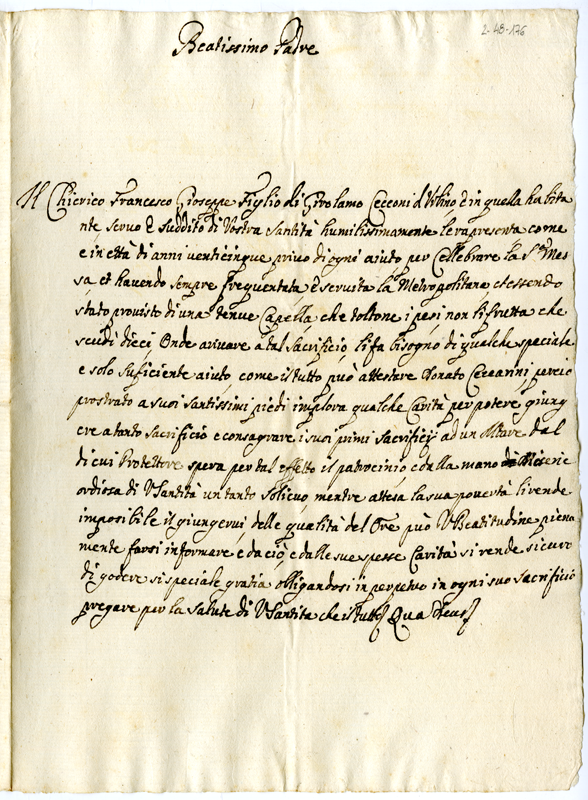 2-48-176
Beatissimo Padre
Il Chierico Francesco Gioseppe Figlio di Girolamo Cecconi d'Vrbino è in quella habita
nte seruo e suddito di Vostra Santità humilissimamente le rapresenta come
e in età di anni venticinque priuo di ogni aiuto per Cellebrare la S.ta Mes
sa, et hauendo sempre frequentata e seruita la Metropolitana et essendo
stato prouisto di una tenue Capella che toltone i pesi non li frutta che
scudi dieci Onde arriuare a tal sacrificio li fa bisogno di qualche speciale
e solo suficiente aiuto come il tutto può attestare Donato perciò
prostrato a suoi santissimi piedi implora qualche Carità per potere giung
ere a tanto sacrificio e consagrare i suoi primi sacrificij ad un Altare dal
di cui Protettore spera per tal effetto il patrocinio con la mano Miseric
ordiosa di V Santità un tanto solieuo, mentre attesa la sua pouertà li rende
imposibile il giungerui delle qualità del Ore può V Beatitudine piena
mente farsi informare e da ciò, e dalle sue spesse Carità si rende sicuro
di godere si speciale gratia obligandosi in perpetuo in ogni suo sacrificio
pregare per la salute di V Santità che il tutto Qua Deus